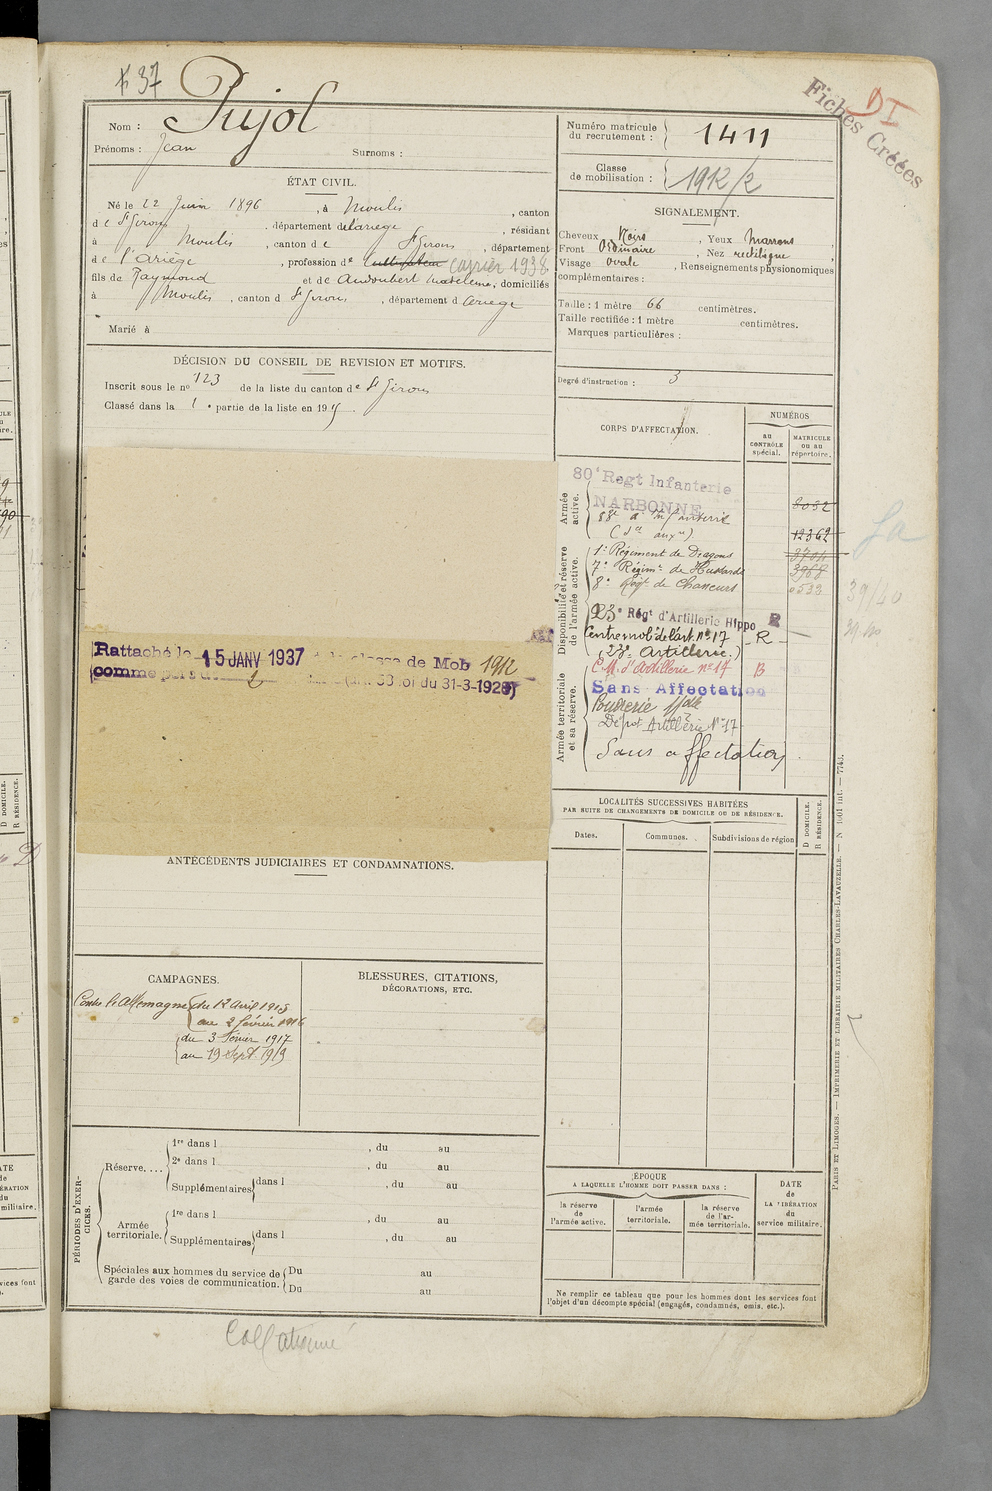 37
Fiches Créées
DI
Nom : Pujol
Prénoms : Jean
Surnoms :
Numéro matricule du recrutement : 1411
Classe de mobilisation : 1912/2
ÉTAT CIVIL.
Né le 22 Juin 1896, à Moulis, canton
de St Girons, département de l'ariège, résidant
à Moulis, canton de St Girons, département
de l'Ariège, profession de Cultivateur Carrier 1938
fils de Raymond et de Audoubert Madeleine, domiciliés
à Moulis, canton d St Girons, département d Ariège
Marié à
SIGNALEMENT.
Cheveux Noirs, Yeux Marrons
Front Ordinaire, Nez rectiligne
Visage Ovale, Renseignements physionomiques
complémentaires :
Taille : 1 mètre 66 centimètres.
Taille rectifiée : 1 mètre centimètres.
Marques particulières :
Degré d'instruction : 3
DÉCISION DU CONSEIL DE REVISION ET MOTIFS.
Inscrit sous le no 123 de la liste du canton de St Girons
Classé dans la 1e partie de la liste en 1915.
CORPS D'AFFECTATION.
NUMÉROS
au CONTRÔLE spécial.
MATRICULE ou au répertoire.
Armée active.
80e Regt Infanterie
NARBONNE
88e d'Infanterie
(Sce auxre)
12362
Disponibilité et réserve de l'armée active.
1er Régiment de Dragons
7e Régimt de Hussards
8e Régt de Chasseurs
23e Régt d'Artillerie Hippo R
Centre mobr de l'art. no 17 R
(23e Artillerie.)
Armée territoriale et sa réserve.
C.M. d'Artillerie no 17 B
Sans Affectation
Poudrerie
Dépôt Artillerie No 17
Sans affectation
Rattaché le 15 JANV 1937 classe de Mob 1912
comme 2 (art. 58 loi du 31-3-1928)
LOCALITÉS SUCCESSIVES HABITÉES
PAR SUITE DE CHANGEMENTS DE DOMICILE OU DE RÉSIDENCE.
Dates.
Communes.
Subdivisions de région
D DOMICILE.
R RÉSIDENCE.
ANTÉCÉDENTS JUDICIAIRES ET CONDAMNATIONS.
CAMPAGNES.
Contre l'Allemagne du 12 Avril 1915
au 2 février 1916
du 3 février 1917
au 19 Sept. 1919
BLESSURES, CITATIONS,
DÉCORATIONS, ETC.
PÉRIODES D'EXERCICES.
Réserve....
1re dans l , du au
2e dans l , du au
Supplémentaires dans l , du au
Armée territoriale.
1re dans l , du au
Supplémentaires dans l , du au
Spéciales aux hommes du service de garde des voies de communication.
Du au
Du au
ÉPOQUE
A LAQUELLE L'HOMME DOIT PASSER DANS :
la réserve de l'armée active.
l'armée territoriale.
la réserve de l'armée territoriale.
DATE de LA LIBÉRATION du service militaire.
Ne remplir ce tableau que pour les hommes dont les services font
l'objet d'un décompte spécial (engagés, condamnés, omis, etc.).
PARIS ET LIMOGES. — IMPRIMERIE ET LIBRAIRIE MILITAIRES CHARLES-LAVAUZELLE.
Collationné